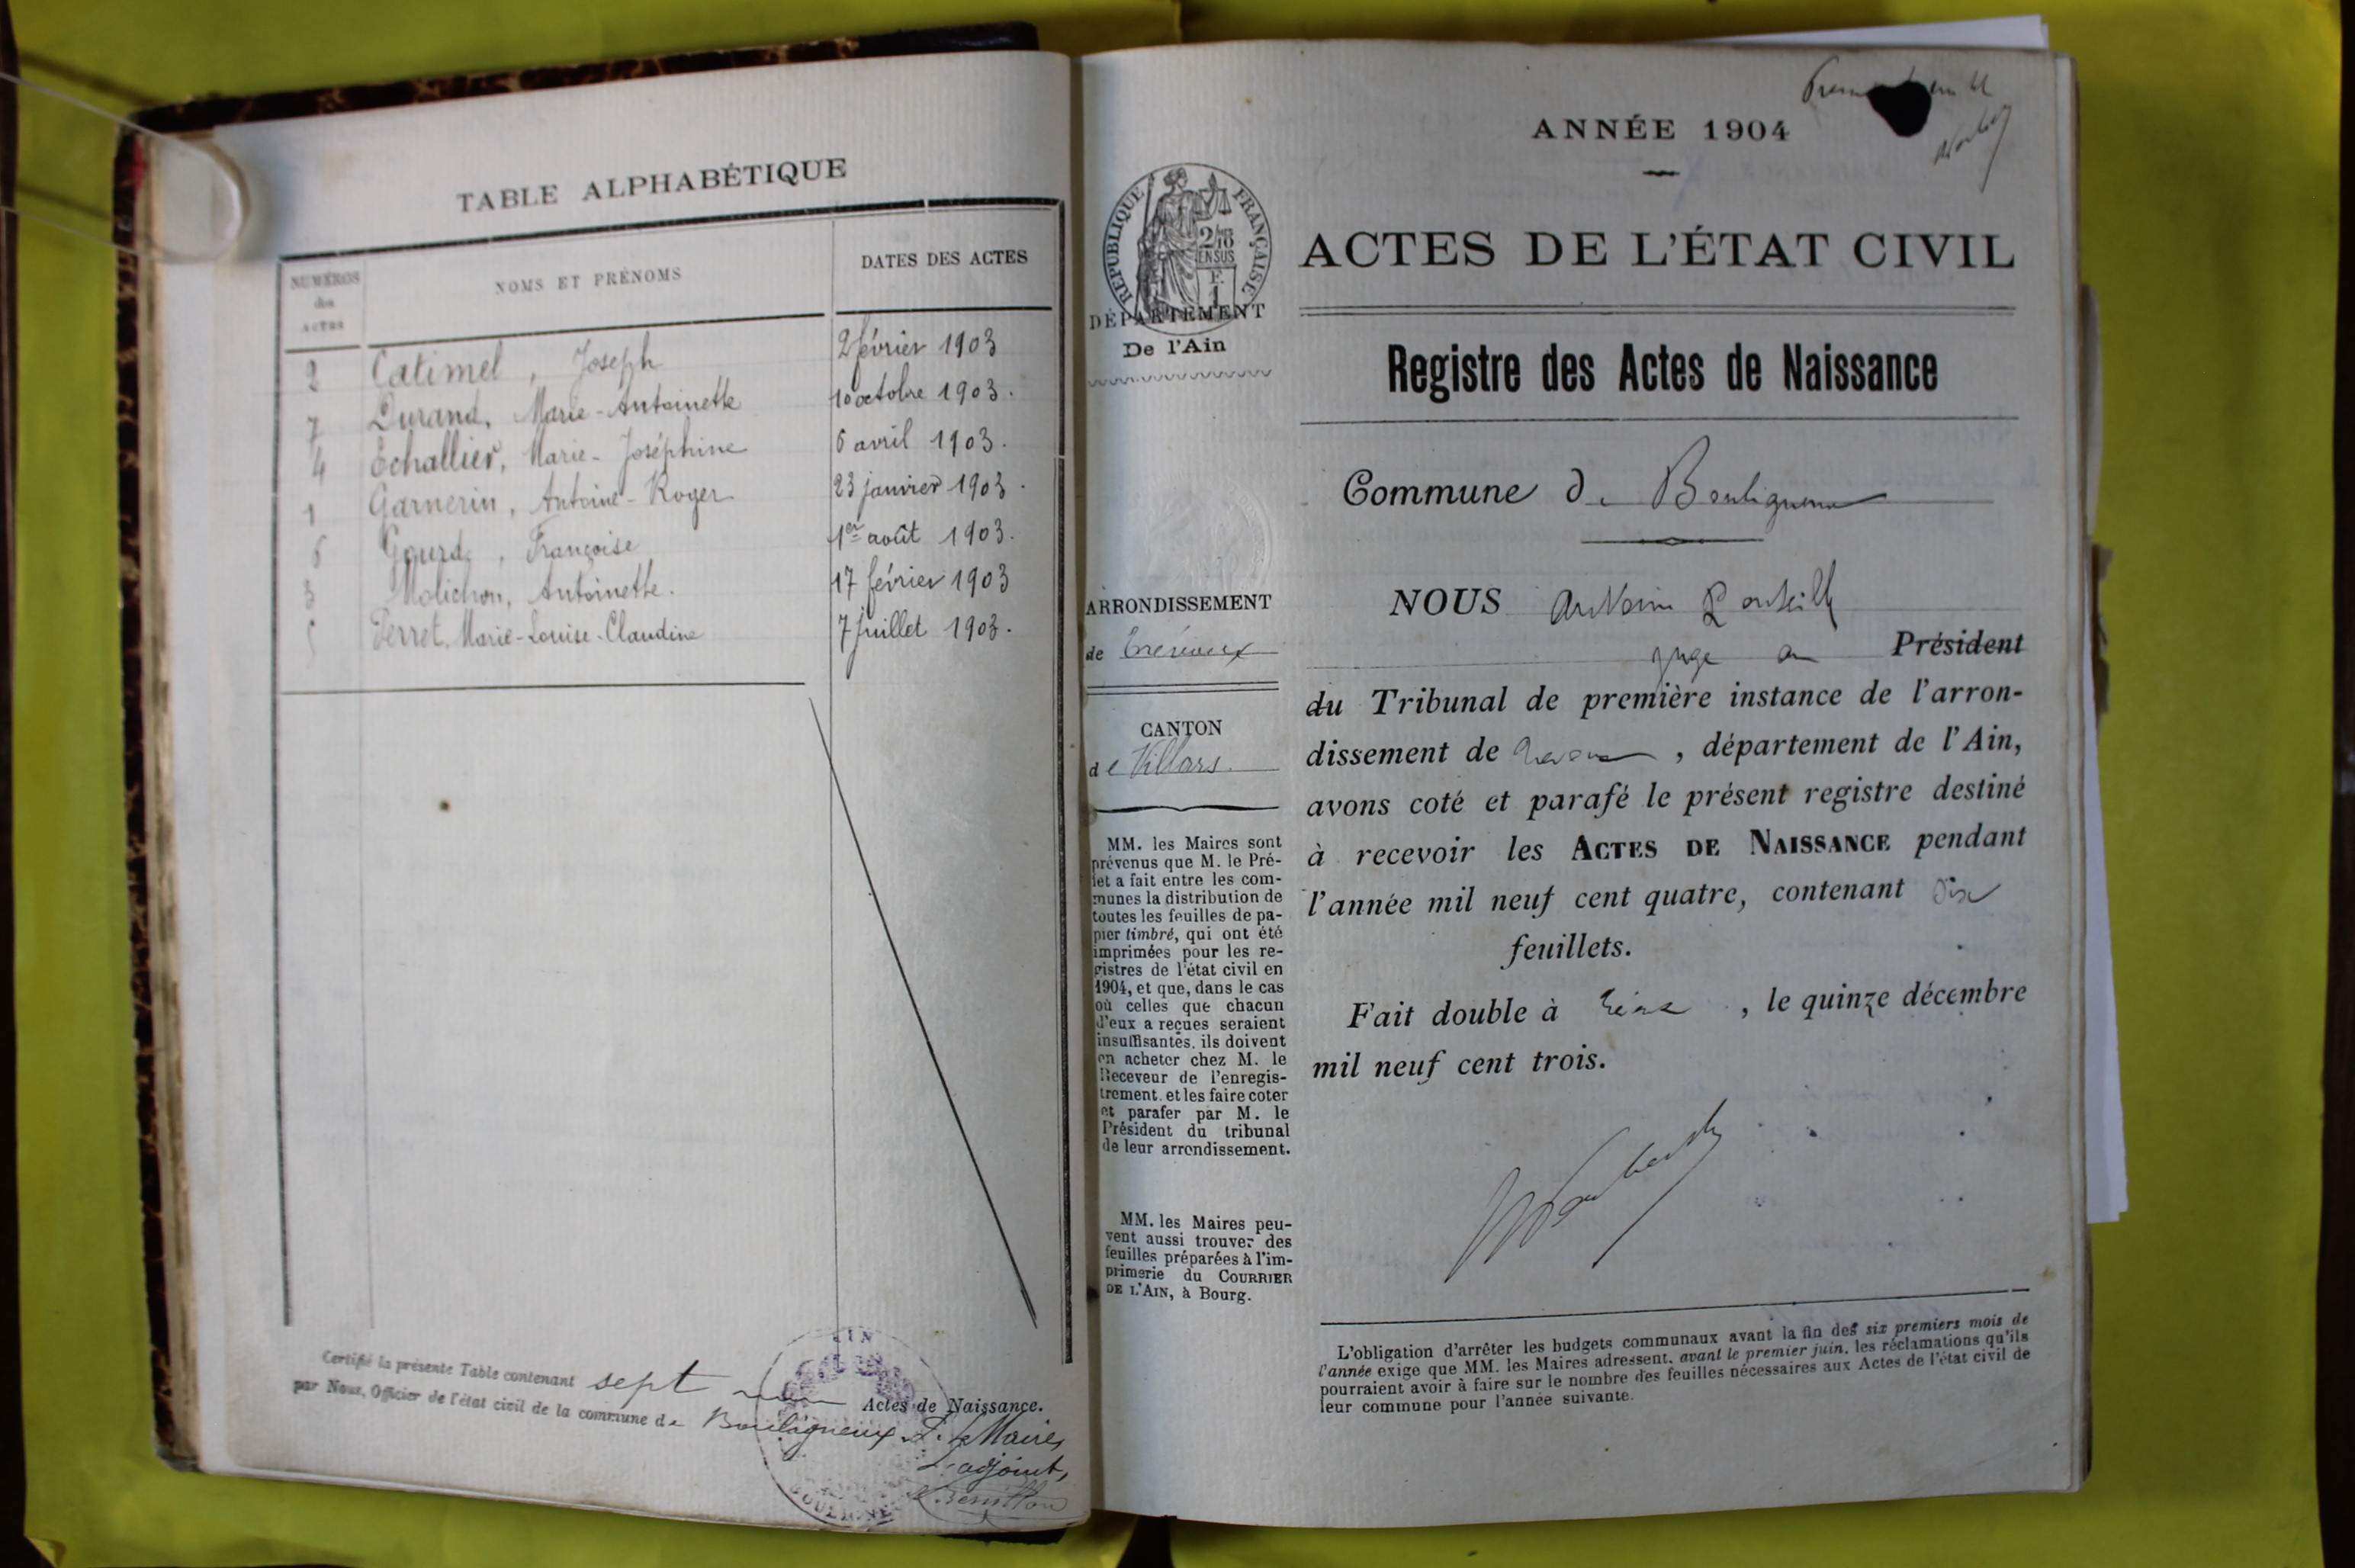 TABLE ALPHABÉTIQUE
NUMÉROS
des
ACTES
NOMS ET PRÉNOMS
DATES DES ACTES
2 Catimel, Joseph 2 février 1903
7 Durand, Marie-Antoinette 10 octobre 1903.
4 Echallier, Marie-Joséphine 6 avril 1903.
1 Garnerin, Antoine-Roger 23 janvier 1903.
6 Gourd, Françoise 1er août 1903.
3 Molichon, Antoinette. 17 février 1903
5 Perret, Marie-Louise-Claudine 7 juillet 1903.
Certifié la présente Table contenant sept Actes de Naissance.
par Nous, Officier de l'état civil de la commune de Bouligneux P. le Maire,
L'adjoint,
AIN
ANNÉE 1904
RÉPUBLIQUE FRANÇAISE
2/10
EN SUS
F.
1
DÉPARTEMENT
De l'Ain
ARRONDISSEMENT
de Trévoux
CANTON
de Villars.
MM. les Maires sont
prévenus que M. le Pré-
fet a fait entre les com-
munes la distribution de
toutes les feuilles de pa-
pier timbré, qui ont été
imprimées pour les re-
gistres de l'état civil en
1904, et que, dans le cas
où celles que chacun
d'eux a reçues seraient
insuffisantes, ils doivent
en acheter chez M. le
Receveur de l'enregis-
trement, et les faire coter
et parafer par M. le
Président du tribunal
de leur arrondissement.
MM. les Maires peu-
vent aussi trouver des
feuilles préparées à l'im-
primerie du COURRIER
DE L'AIN, à Bourg.
ACTES DE L'ÉTAT CIVIL
Registre des Actes de Naissance
Commune de Bouligneux
NOUS Antoine
juge au Président
du Tribunal de première instance de l'arron-
dissement de Trévoux, département de l'Ain,
avons coté et parafé le présent registre destiné
à recevoir les ACTES DE NAISSANCE pendant
l'année mil neuf cent quatre, contenant dix
feuillets.
Fait double à , le quinze décembre
mil neuf cent trois.
L'obligation d'arrêter les budgets communaux avant la fin des six premiers mois de
l'année exige que MM. les Maires adressent, avant le premier juin, les réclamations qu'ils
pourraient avoir à faire sur le nombre des feuilles nécessaires aux Actes de l'état civil de
leur commune pour l'année suivante.